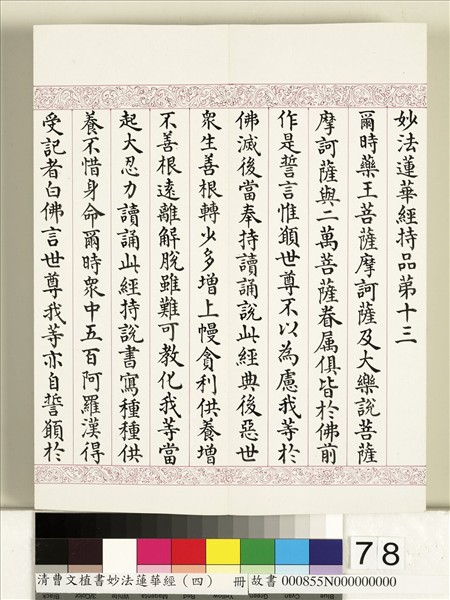 妙法蓮華經持品第十三
爾時藥王菩薩摩訶薩及大樂說菩薩
摩訶薩與二萬菩薩眷屬俱皆於佛前
作是誓言惟願世尊不以為慮我等於
佛滅後當奉持讀誦說此經典後惡世
眾生善根轉少多增上慢貪利供養增
不善根遠離解脫雖難可教化我等當
起大忍力讀誦此經持說書寫種種供
養不惜身命爾時眾中五百阿羅漢得
受記者白佛言世尊我等亦自誓願於
78
清曹文植書妙法蓮華經（四） 冊 故書 000855N000000000